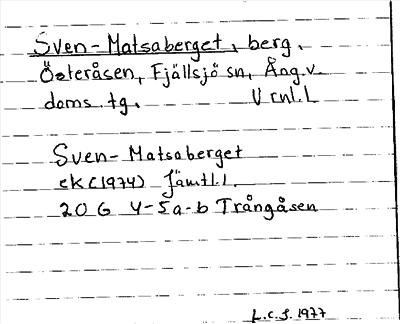 Sven-Matsaberget, berg,
Österåsen, Fjällsjö sn, Ång.v.
doms.tg. V rnl.L
Sven-Matsaberget
ek (1974) Jämtl.l.
20 G 4-5a-b Trångåsen
L.c.J. 1977